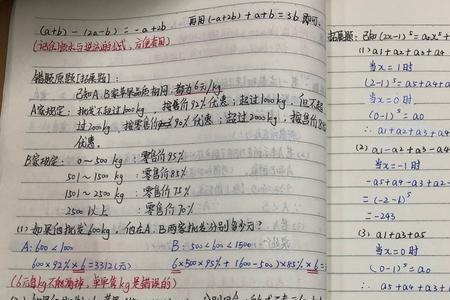 (a+b) - (2a-b) = -a+2b 再用(-a+2b)+a+b=3b 即可.
错题原题【拓展题】:
已知A、B家苹果品质相同,都为6元/kg
A家规定: 批发不超过1000kg, 按零售价92%优惠;超过1000kg,但不超
过2000kg,按零售价90%优惠;超过2000kg,按售价
优惠.
B家规定: 0~500kg : 零售价95%
501~1500kg : 零售价85%
1501~2500kg : 零售价75%
2500以上 : 零售价70%
(1) 如果他批发600kg,他在A、B两家批发分别多少元?
A: 600<1000 B: 500<600<1500
600×92%×6=3312(元) 6×500×95%+(600-500)×85%×6=
(6元每kg不能漏掉,单单算kg是错误的)
拓展题: 已知(2x-1)⁵=a₅x⁵+
(1) a1+a2+a3+a4
当x=1时
(2-1)⁵=a5+a4+a
当x=0时
(0-1)⁵=a0
∴a1+a2+a3+a4
(2) a1-a2+a3-a4
当x=-1时
-a5+a4-a3+a2-
=(-2-1)⁵
=-243
(3) a1+a3+a5
当x=0时
(0-1)⁵=a0
∴a5+a4+a3+